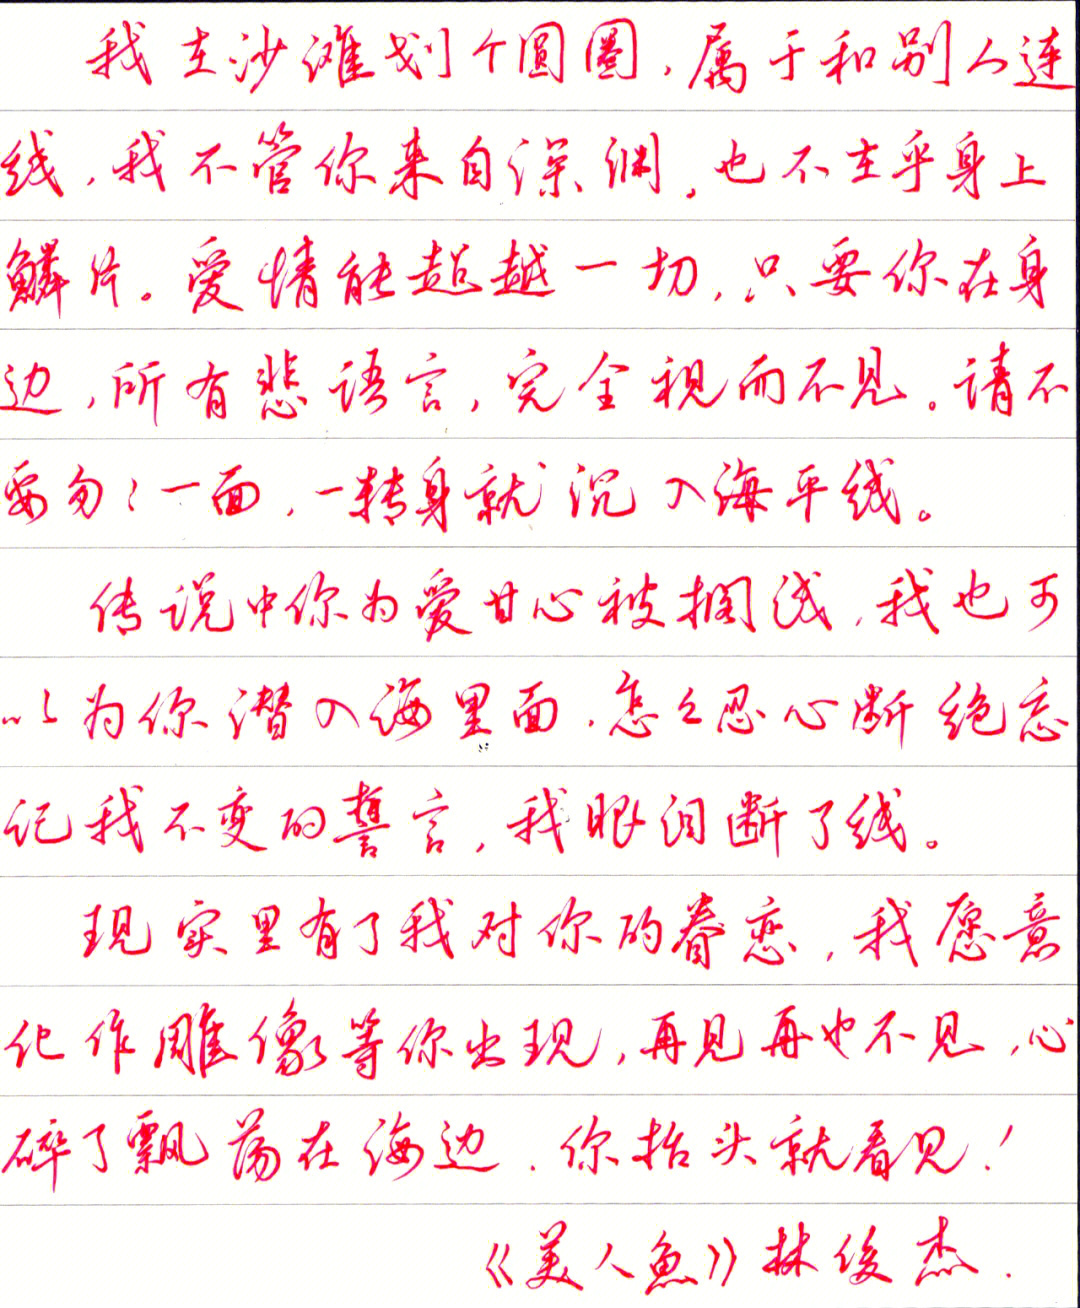 我在沙滩划个圆圈,属于和别人连
线,我不管你来自深渊,也不在乎身上
鳞片。爱情能超越一切,只要你在身
边,所有悲语言,完全视而不见。请不
要匆匆一面,一转身就沉入海平线。
传说中你为爱甘心被搁浅,我也可
以为你潜入海里面.怎么忍心断绝忘
记我不变的誓言,我眼泪断了线。
现实里有了我对你的眷恋,我愿意
化作雕像等你出现,再见再也不见,心
碎了飘荡在海边.你抬头就看见!
《美人鱼》林俊杰.